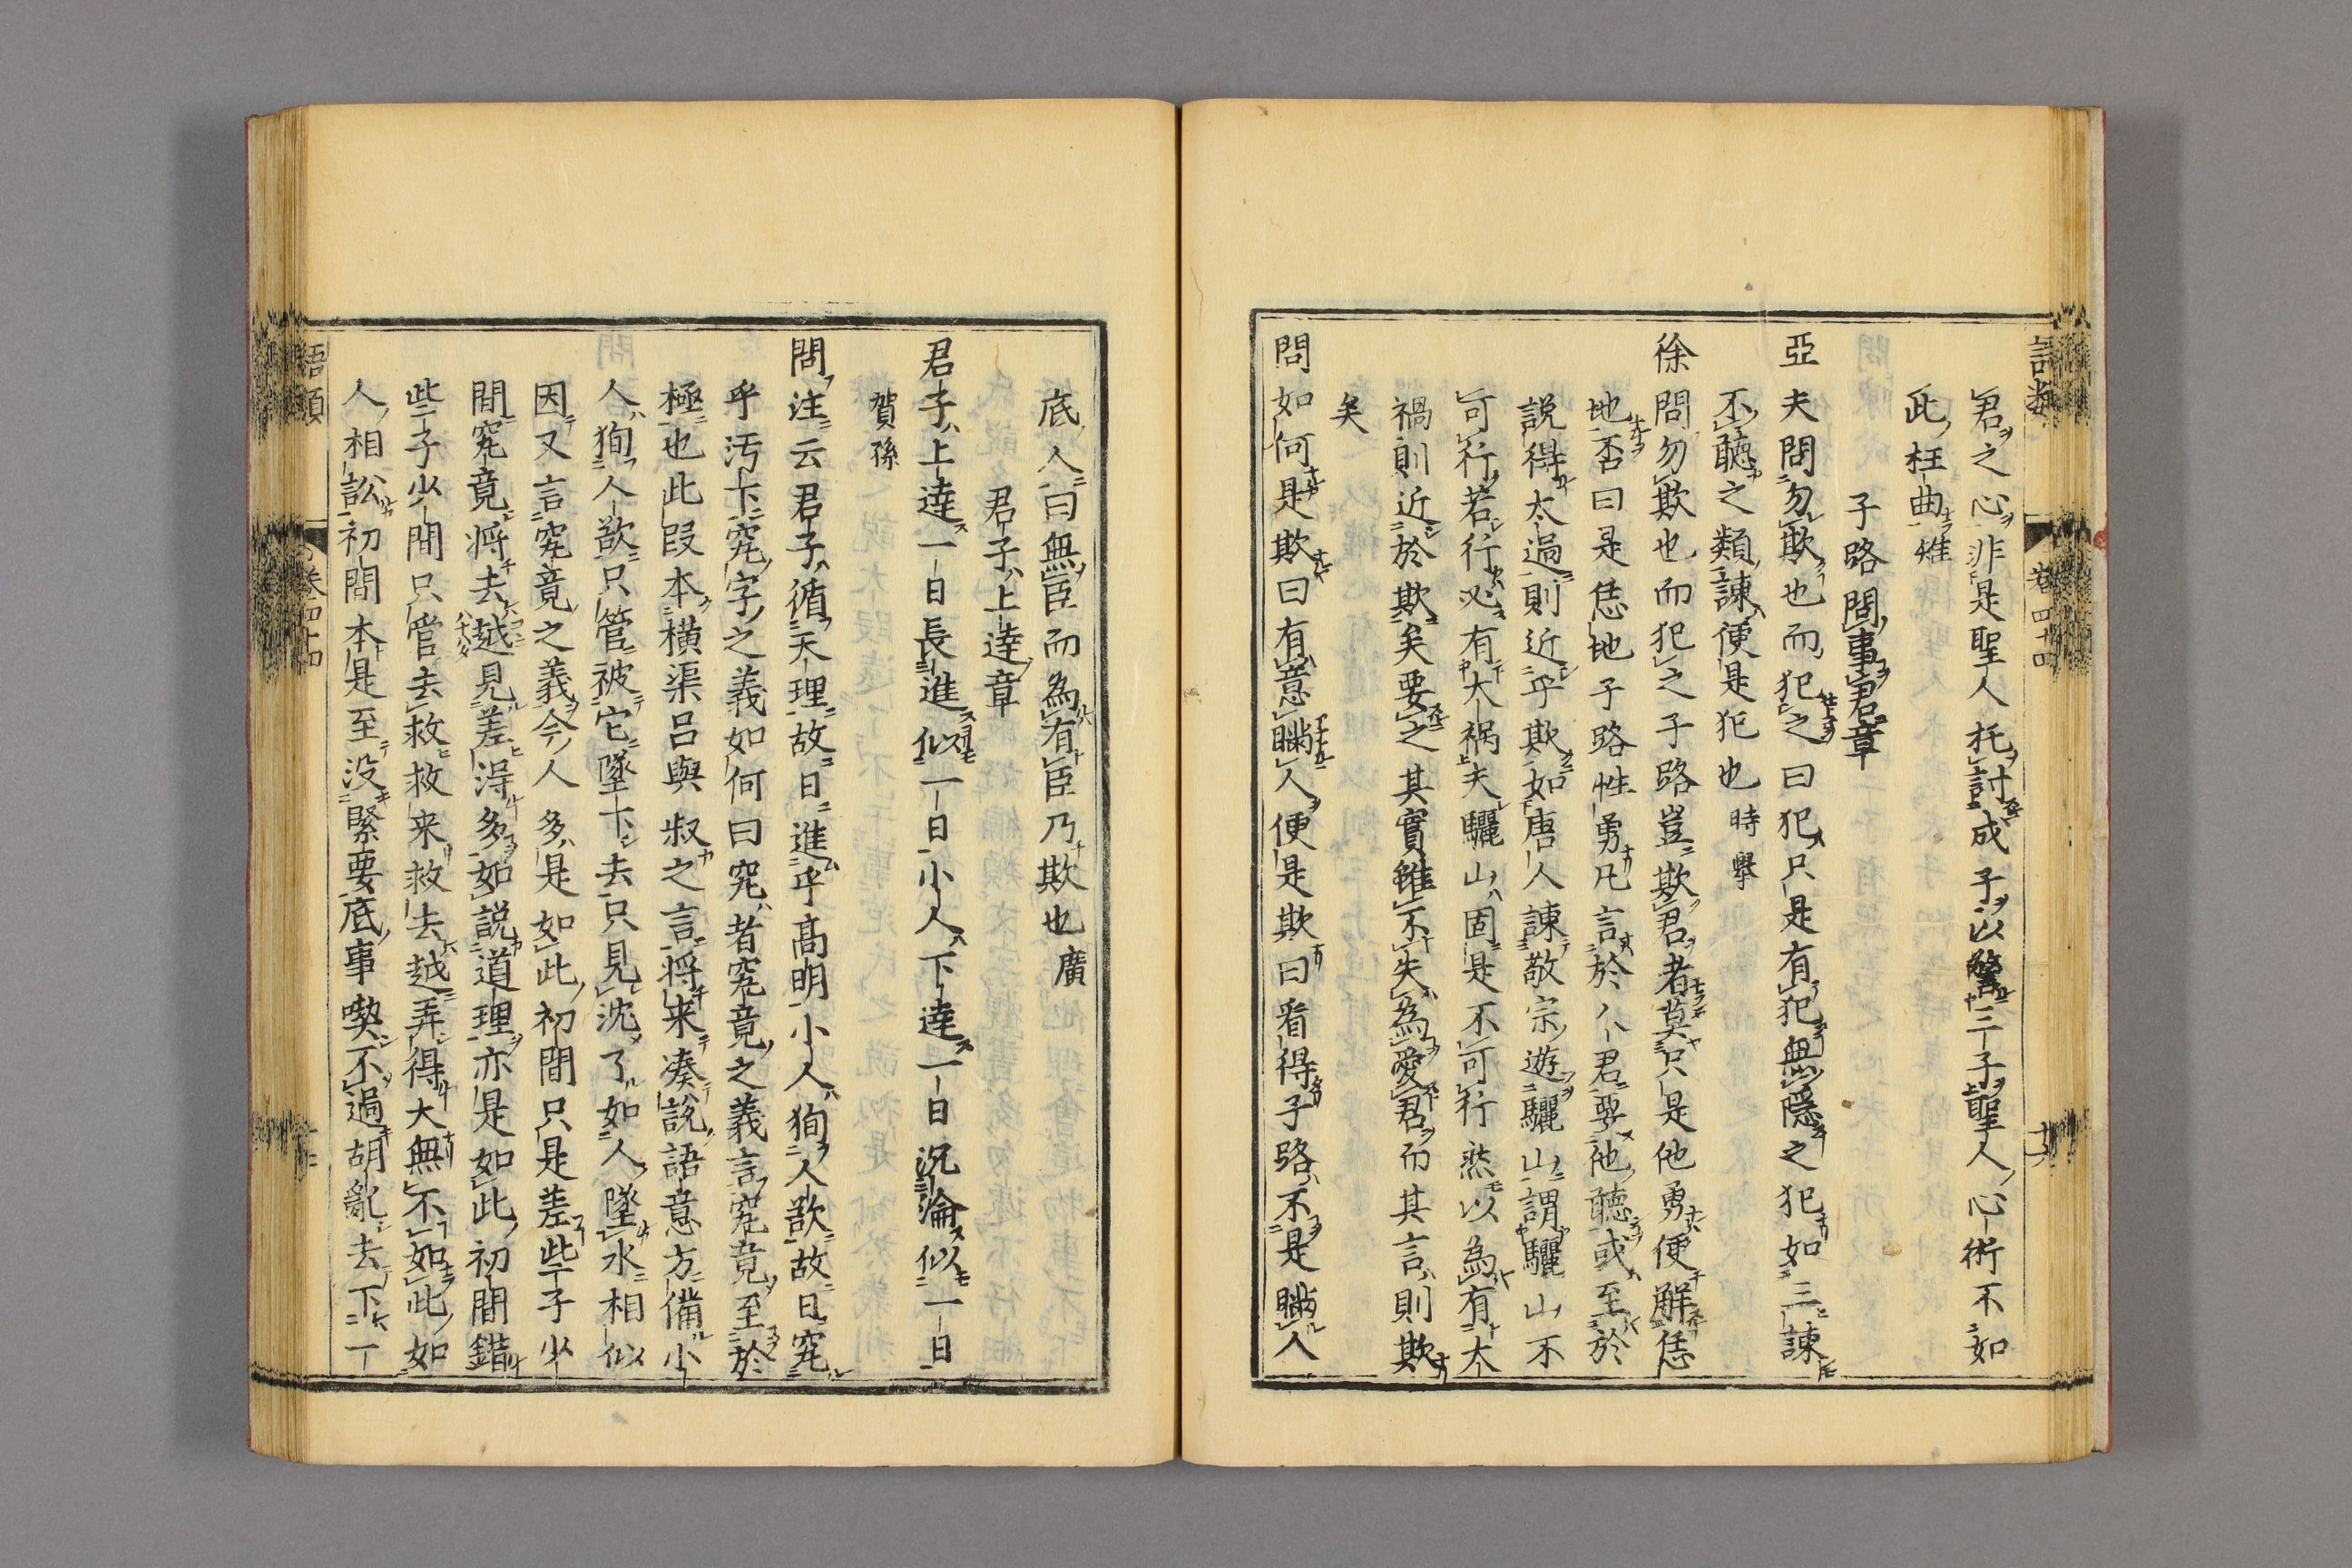 語類 卷四十四
君之心非是聖人托討成子以警三子聖人心術不如
此枉曲雉
子路問事君章
亞夫問勿欺也而犯之曰犯只是有犯無隱之犯如三諫
不聽之類諫便是犯也時舉
徐問勿欺也而犯之子路豈欺君者莫只是他勇便解恁
地否曰是恁地子路性勇凡言於人君要他聽或至於
說得太過則近乎欺如唐人諫敬宗遊驪山謂驪山不
可行若行必有大禍夫驪山固是不可行然以為有大
禍則近於欺矣要之其實雖不失為愛君而其言則欺
矣
問如何是欺曰有意瞞人便是欺曰看得子路不是瞞人
底人曰無臣而為有臣乃欺也廣
君子上達章
君子上達一日長進似一日小人下達一日沉淪似一日
賀孫
問注云君子循天理故日進乎高明小人狥人欲故日究
乎汚下究字之義如何曰究者究竟之義言究竟至於
極也此段本橫渠呂與叔之言將来湊說語意方備小
人狥人欲只管被它墜下去只見沈了如人墜水相似
因又言究竟之義今人多是如此初間只是差些子少
間究竟將去越見差得多如說道理亦是如此初間錯
些子少間只管去救救来救去越弄得大無不如此如
人相訟初間本是至没緊要底事喫不過胡亂去下一
語類 卷四十四